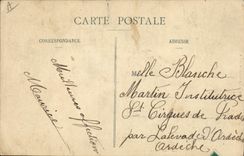 CARTE POSTALE
CORRESPONDANCE
ADRESSE
Melle Blanche
Martin Institutrice
St Cirgues de Prades
par Lalevade d'Ardèche
Ardèche
affection
Maurice